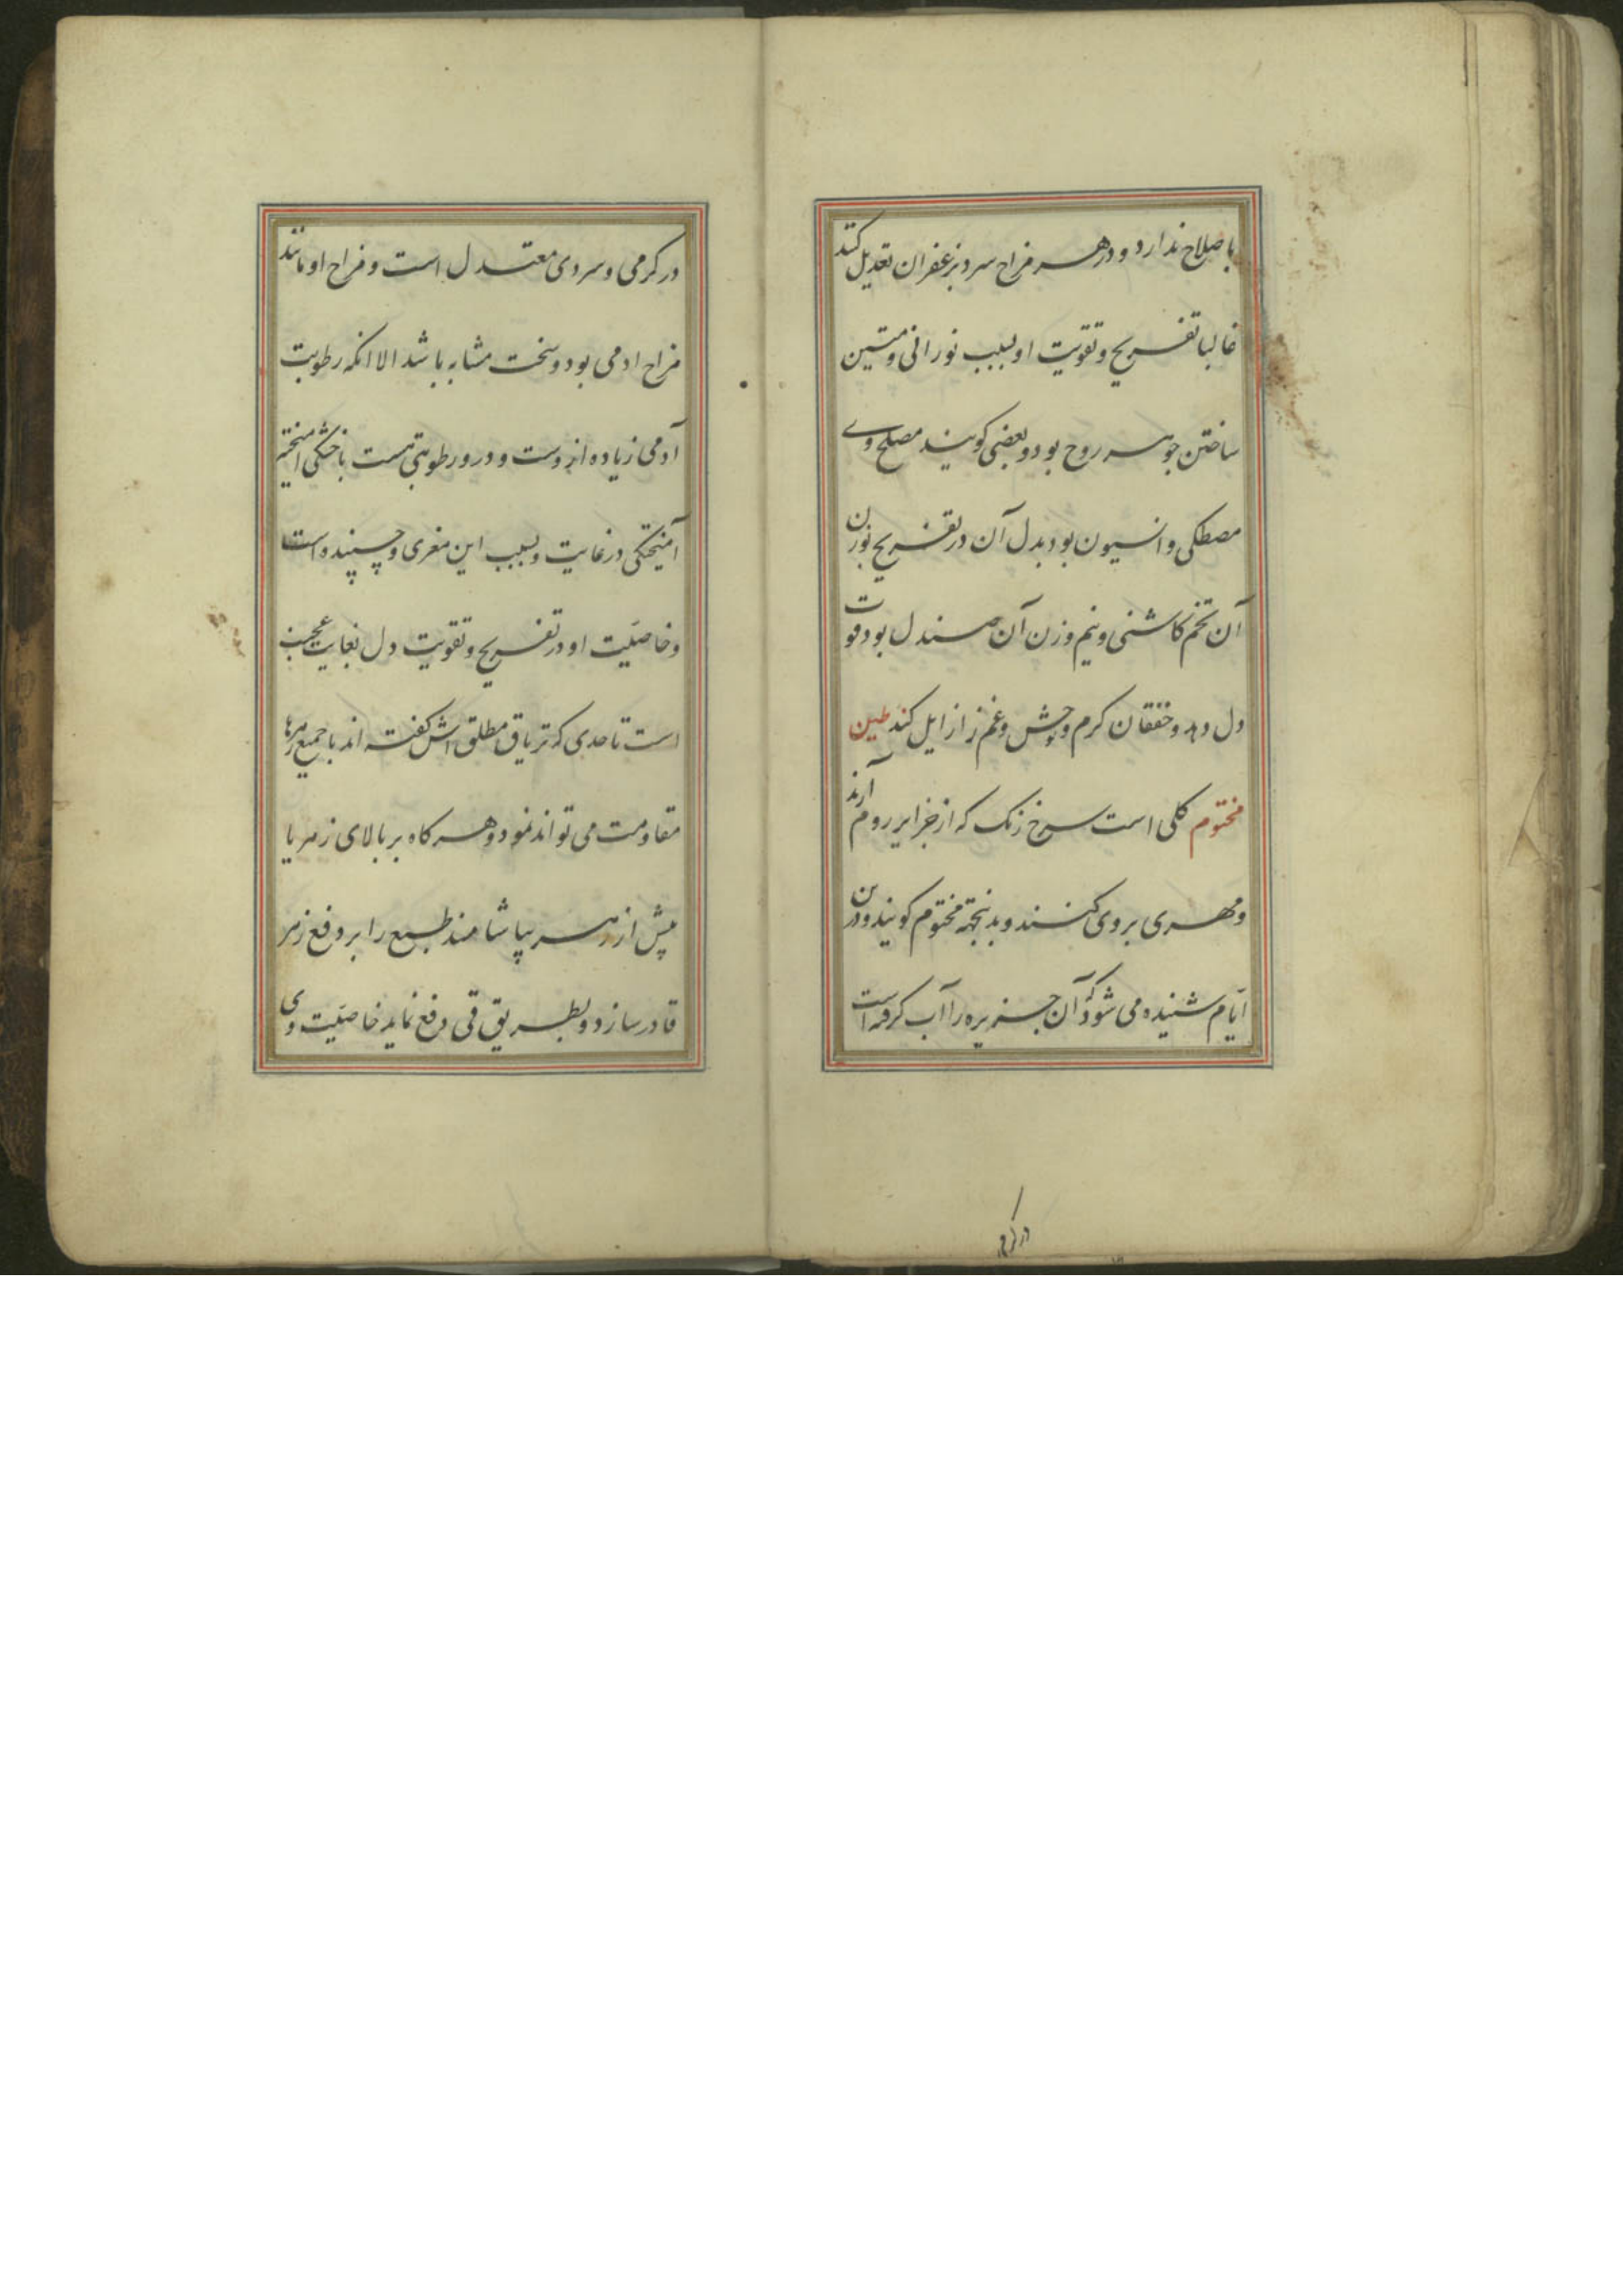 باصلاح ندارد و در هر مزاج سرد بزعفران تعدیل کنند
غالبا تفریح و تقویت او بسبب نورانی و متین
ساختن جوهر روح بود و بعضی کویند مصلح وے
مصطکی و انیسون بود بدل آن در تفریح بوزن
آن تخم کاشنی و نیم وزن آن صندل بود قوت
دل دهد و خفقان کرم و توحش و غم را زایل کند طین
مختوم کلی است سرخ رنک که از جزایر روم آرند
و مهری بر وی کنند و بدینجهة مختوم کویند و درین
ایّام شنیده می شود که آن جزیره را آب کرفته است
در کرمی
در کرمی و سردی معتدل است و مزاج او مانند
مزاج ادمی بود و سخت مشابه باشد الا انکه رطوبت
آدمی زیاده از وست و درو رطوبتی هست با خشکی امیخته
آمیختکی در غایت و بسبب این مغری و چسپنده است
و خاصیّت او در تفریح و تقویت دل بغایت عجب
است تا حدی که تریاق مطلق اش کفته اند با جمیع زهرها
مقاومت می تواند نمود و هر کاه بر بالای زهر یا
پیش از زهر بیاشامند طبع را بر دفع زهر
قادر سازد و بطریق قی دفع نماید خاصیّت وی